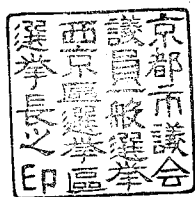 京都市議会
議員一般選挙
西京區選挙區
選挙長之印